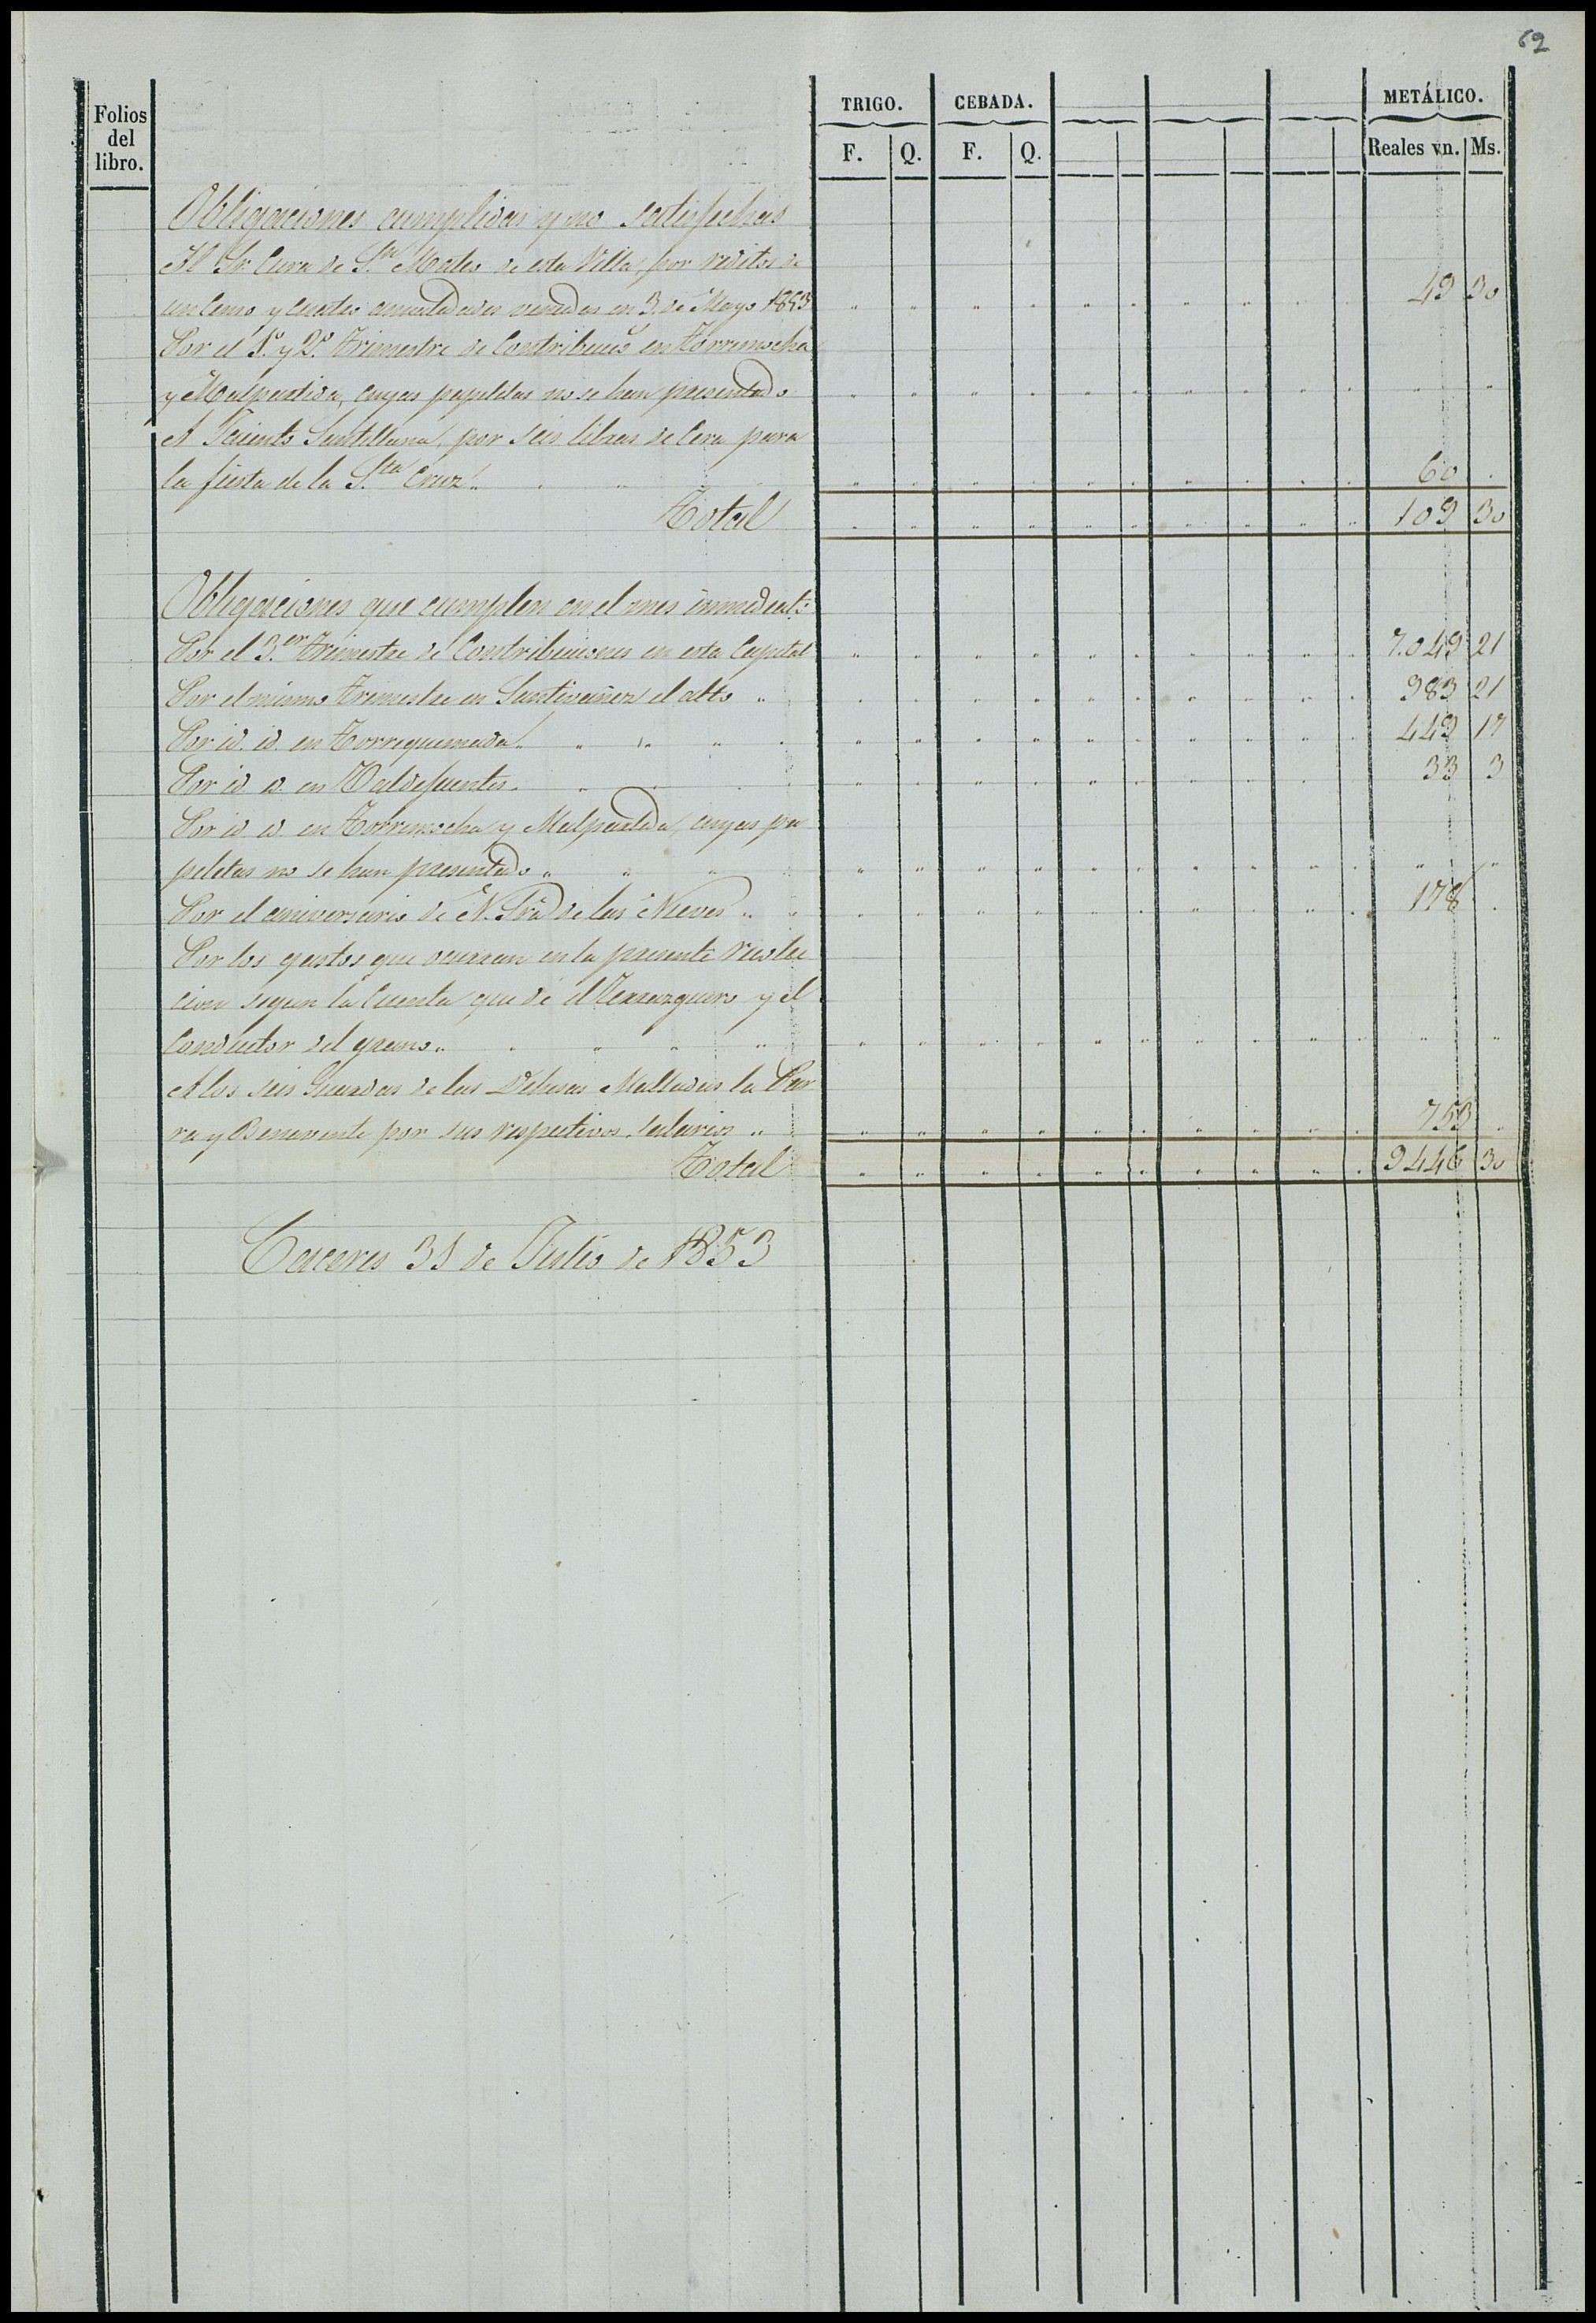 62
Folios del libro.
TRIGO. CEBADA. METÁLICO.
F. Q. F. Q. Reales vn. Ms.
Obligaciones cumplidas y no satisfechas
Al Sr. Cura de Sn. Mateo de esta Villa, por reditos de
un Censo y cuatro anualidades vencidas en 3. de Mayo 1853 49 30
Por el 1º. y 2º. Trimestre de Contribucs en Torremocha
y Malpartida, cuyas papeletas no se han presentado
A Vicente Santillana, por seis libras de Cera para
la fiesta de la Sta. Cruz 60
Total 109 30
Obligaciones que cumplen en el mes inmediato
Por el 3.er Trimestre de Contribuciones en esta Capital 7.049 21
Por el mismo Trimestre en Santivañez el alto 983 21
Por id. id. en Torrequemada 449 17
Por id id. en Valdefuentes 33 3
Por id. id. en Torremocha y Malpartida, cuyas pa
peletas no se han presentado
Por el aniversario de N. Srā de las Nieves 178
Por los gastos que ocurran en la presente
cion segun la Cuenta que dé el Terrazguero y el
Conductor del grano
A los seis Guardas de las Dehesas Malladas la Par
ra y Benavente por sus respectivos salarios 753
Total 9446 30
Caceres 31 de Julio de 1853